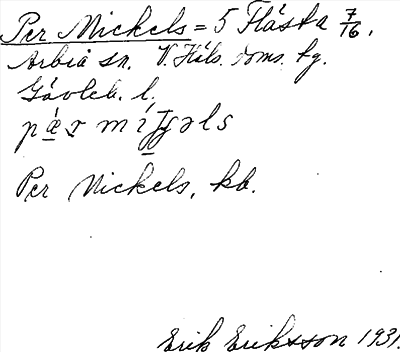 Per Mickels = 5 Flästa 7/16.
Arbrå sn. V. Häls. doms. tg.
Gävleb. l.
Per Mickels, kb.
Erik Eriksson 1931.